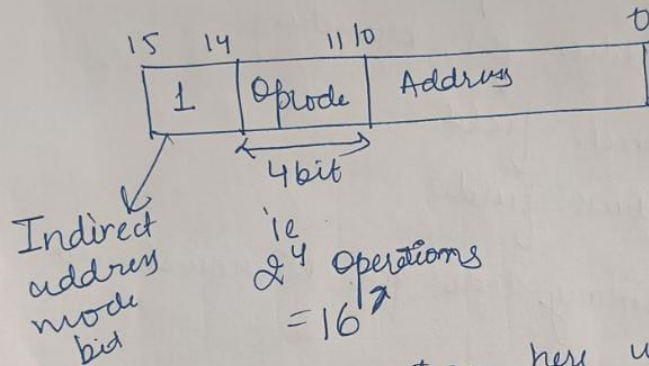 15 14 11 10 0
1 Opcode Address
4 bit
Indirect
address
mode
bit
ie
2⁴ operations
= 16
here